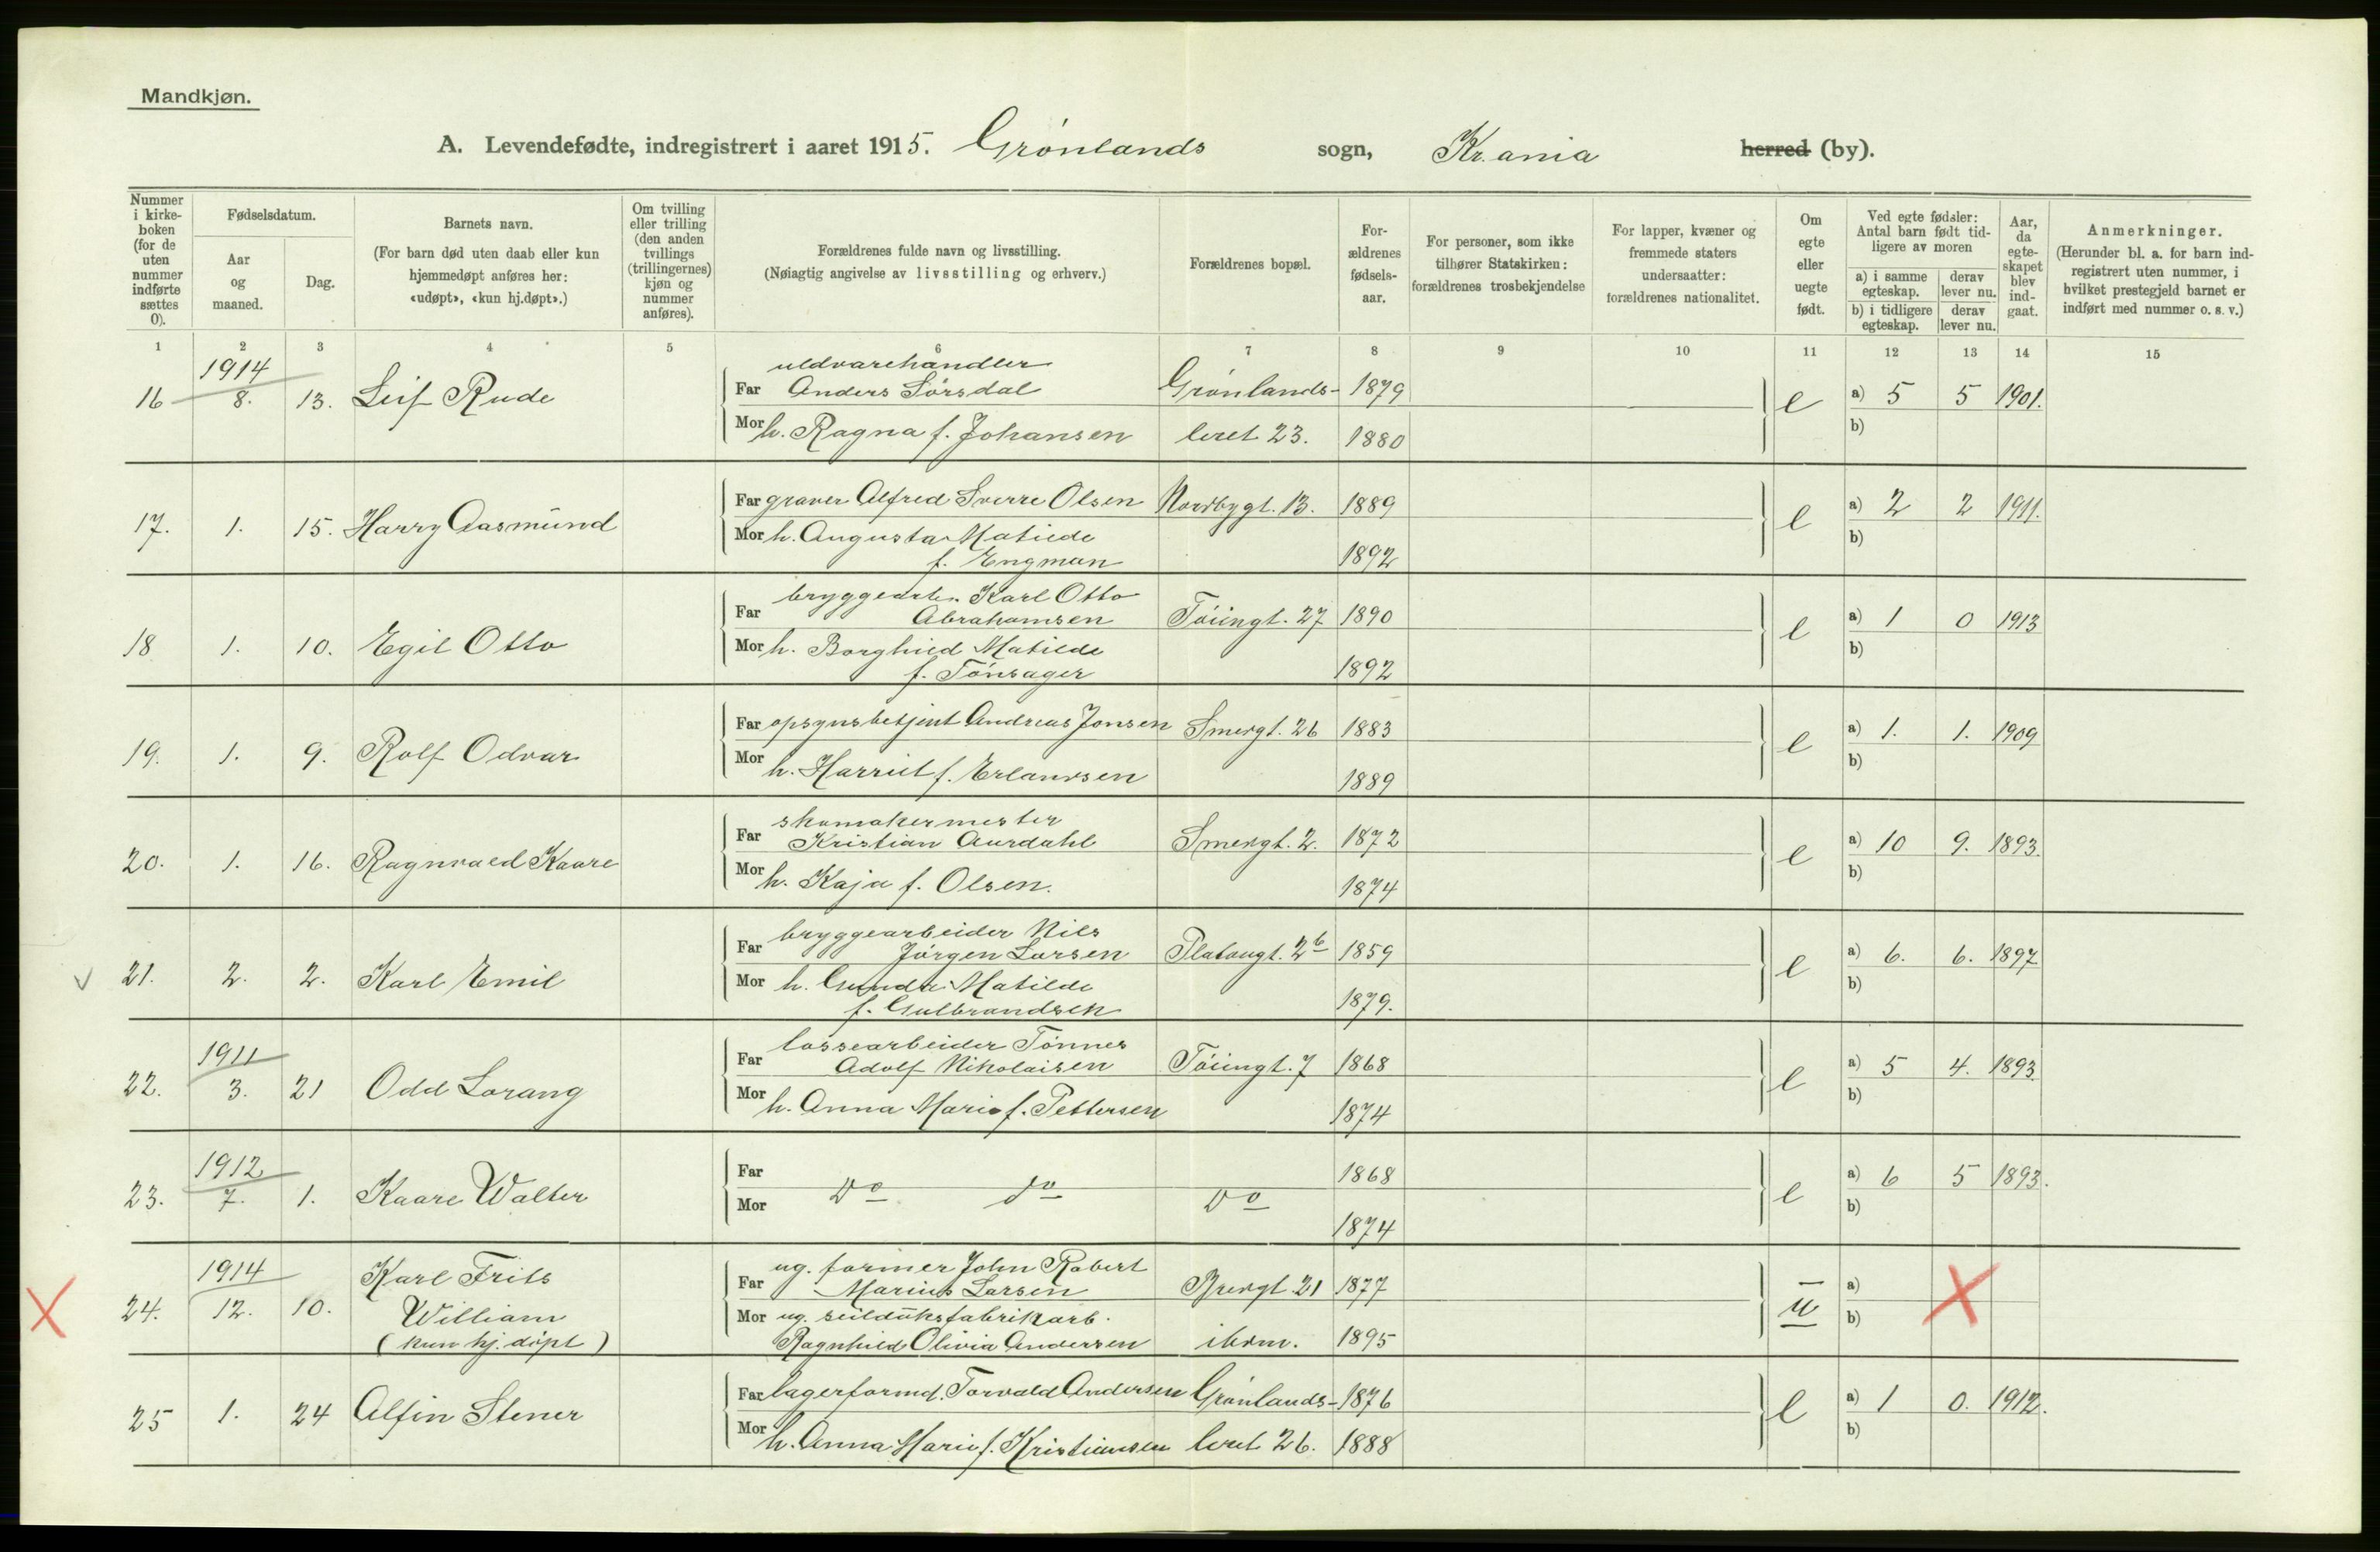 Mandkjøn.
A. Levendefødte, indregistrert i aaret 1915. Grønlands sogn, Kr.ania herred (by).
Nummer i kirke-boken (for de uten nummer indførte sættes 0).
Fødselsdatum.
Aar og maaned.
Dag.
Barnets navn.
(For barn død uten daab eller kun hjemmedøpt anføres her: «udøpt», «kun hj.døpt».)
Om tvilling eller trilling (den anden tvillings (trillingernes) kjøn og nummer anføres).
Forældrenes fulde navn og livsstilling.
(Nøiagtig angivelse av livsstilling og erhverv.)
Forældrenes bopæl.
For-ældrenes fødsels-aar.
For personer, som ikke tilhører Statskirken: forældrenes trosbekjendelse
For lapper, kvæner og fremmede staters undersaatter: forældrenes nationalitet.
Om egte eller uegte født.
Ved egte fødsler: Antal barn født tid-ligere av moren
a) i samme egteskap.
derav lever nu.
b) i tidligere egteskap.
derav lever nu.
Aar, da egte-skapet blev ind-gaat.
Anmerkninger.
(Herunder bl. a. for barn ind-registrert uten nummer, i hvilket prestegjeld barnet er indført med nummer o. s. v.)
1 2 3 4 5 6 7 8 9 10 11 12 13 14 15
1914 uldvarehandler
16 8. 13. Leif Rude Far Anders Sørsdal Grønlands- 1879 e a) 5 5 1901.
Mor h. Ragna f. Johansen leret 23. 1880 b)
17. 1. 15. Harry Aasmund Far graver Alfred Sverre Olsen Nordbygt. 13. 1889 e a) 2 2 1911.
Mor h. Augusta Matilde b)
f. Engman 1892
bryggearb. Karl Otto
18 1. 10. Egil Otto Far Abrahamsen Tøiingt. 27 1890 e a) 1 0 1913
Mor h. Borghild Matilde b)
f. Tønsager 1892
19. 1. 9. Rolf Odvar Far opsynsbetjent Andreas Jonsen Smergt. 26 1883 e a) 1. 1. 1909
Mor h. Harriet f. Erlandsen 1889 b)
skomakermester
20. 1. 16. Ragnvald Kaare Far Kristian Aurdahl Smergt. 2. 1872 e a) 10 9. 1893.
Mor h. Kaja f. Olsen. 1874 b)
bryggearbeider Nils
21. 2. 2. Karl Emil Far Jørgen Larsen Platougt. 2b 1859 e a) 6. 6. 1897
Mor h. Gunda Matilde b)
f. Gulbrandsen 1879.
1911 lossearbeider Tønnes
22. 3. 21 Odd Lorang Far Adolf Nikolaisen Tøiingt. 7 1868 e a) 5 4. 1893.
Mor h. Anna Marie f. Pettersen 1874 b)
1912
23. 7. 1. Kaare Walter Far 1868 e a) 6 5 1893.
Mor Do do Do 1874 b)
1914 Karl Frits ug. former John Robert
24. 12. 10. William Far Marius Larsen Brevgt. 21 1877 u a)
Mor ug. seilduksfabrikarb. b)
(kun hj. døpt) Ragnhild Olivia Andersen ibdm. 1895
25 1. 24 Alfin Stener Far lagerformd. Torvald Andersen Grønlands- 1876 e a) 1 0. 1912.
Mor h. Anna Marie f. Kristiansen leret 26. 1888 b)